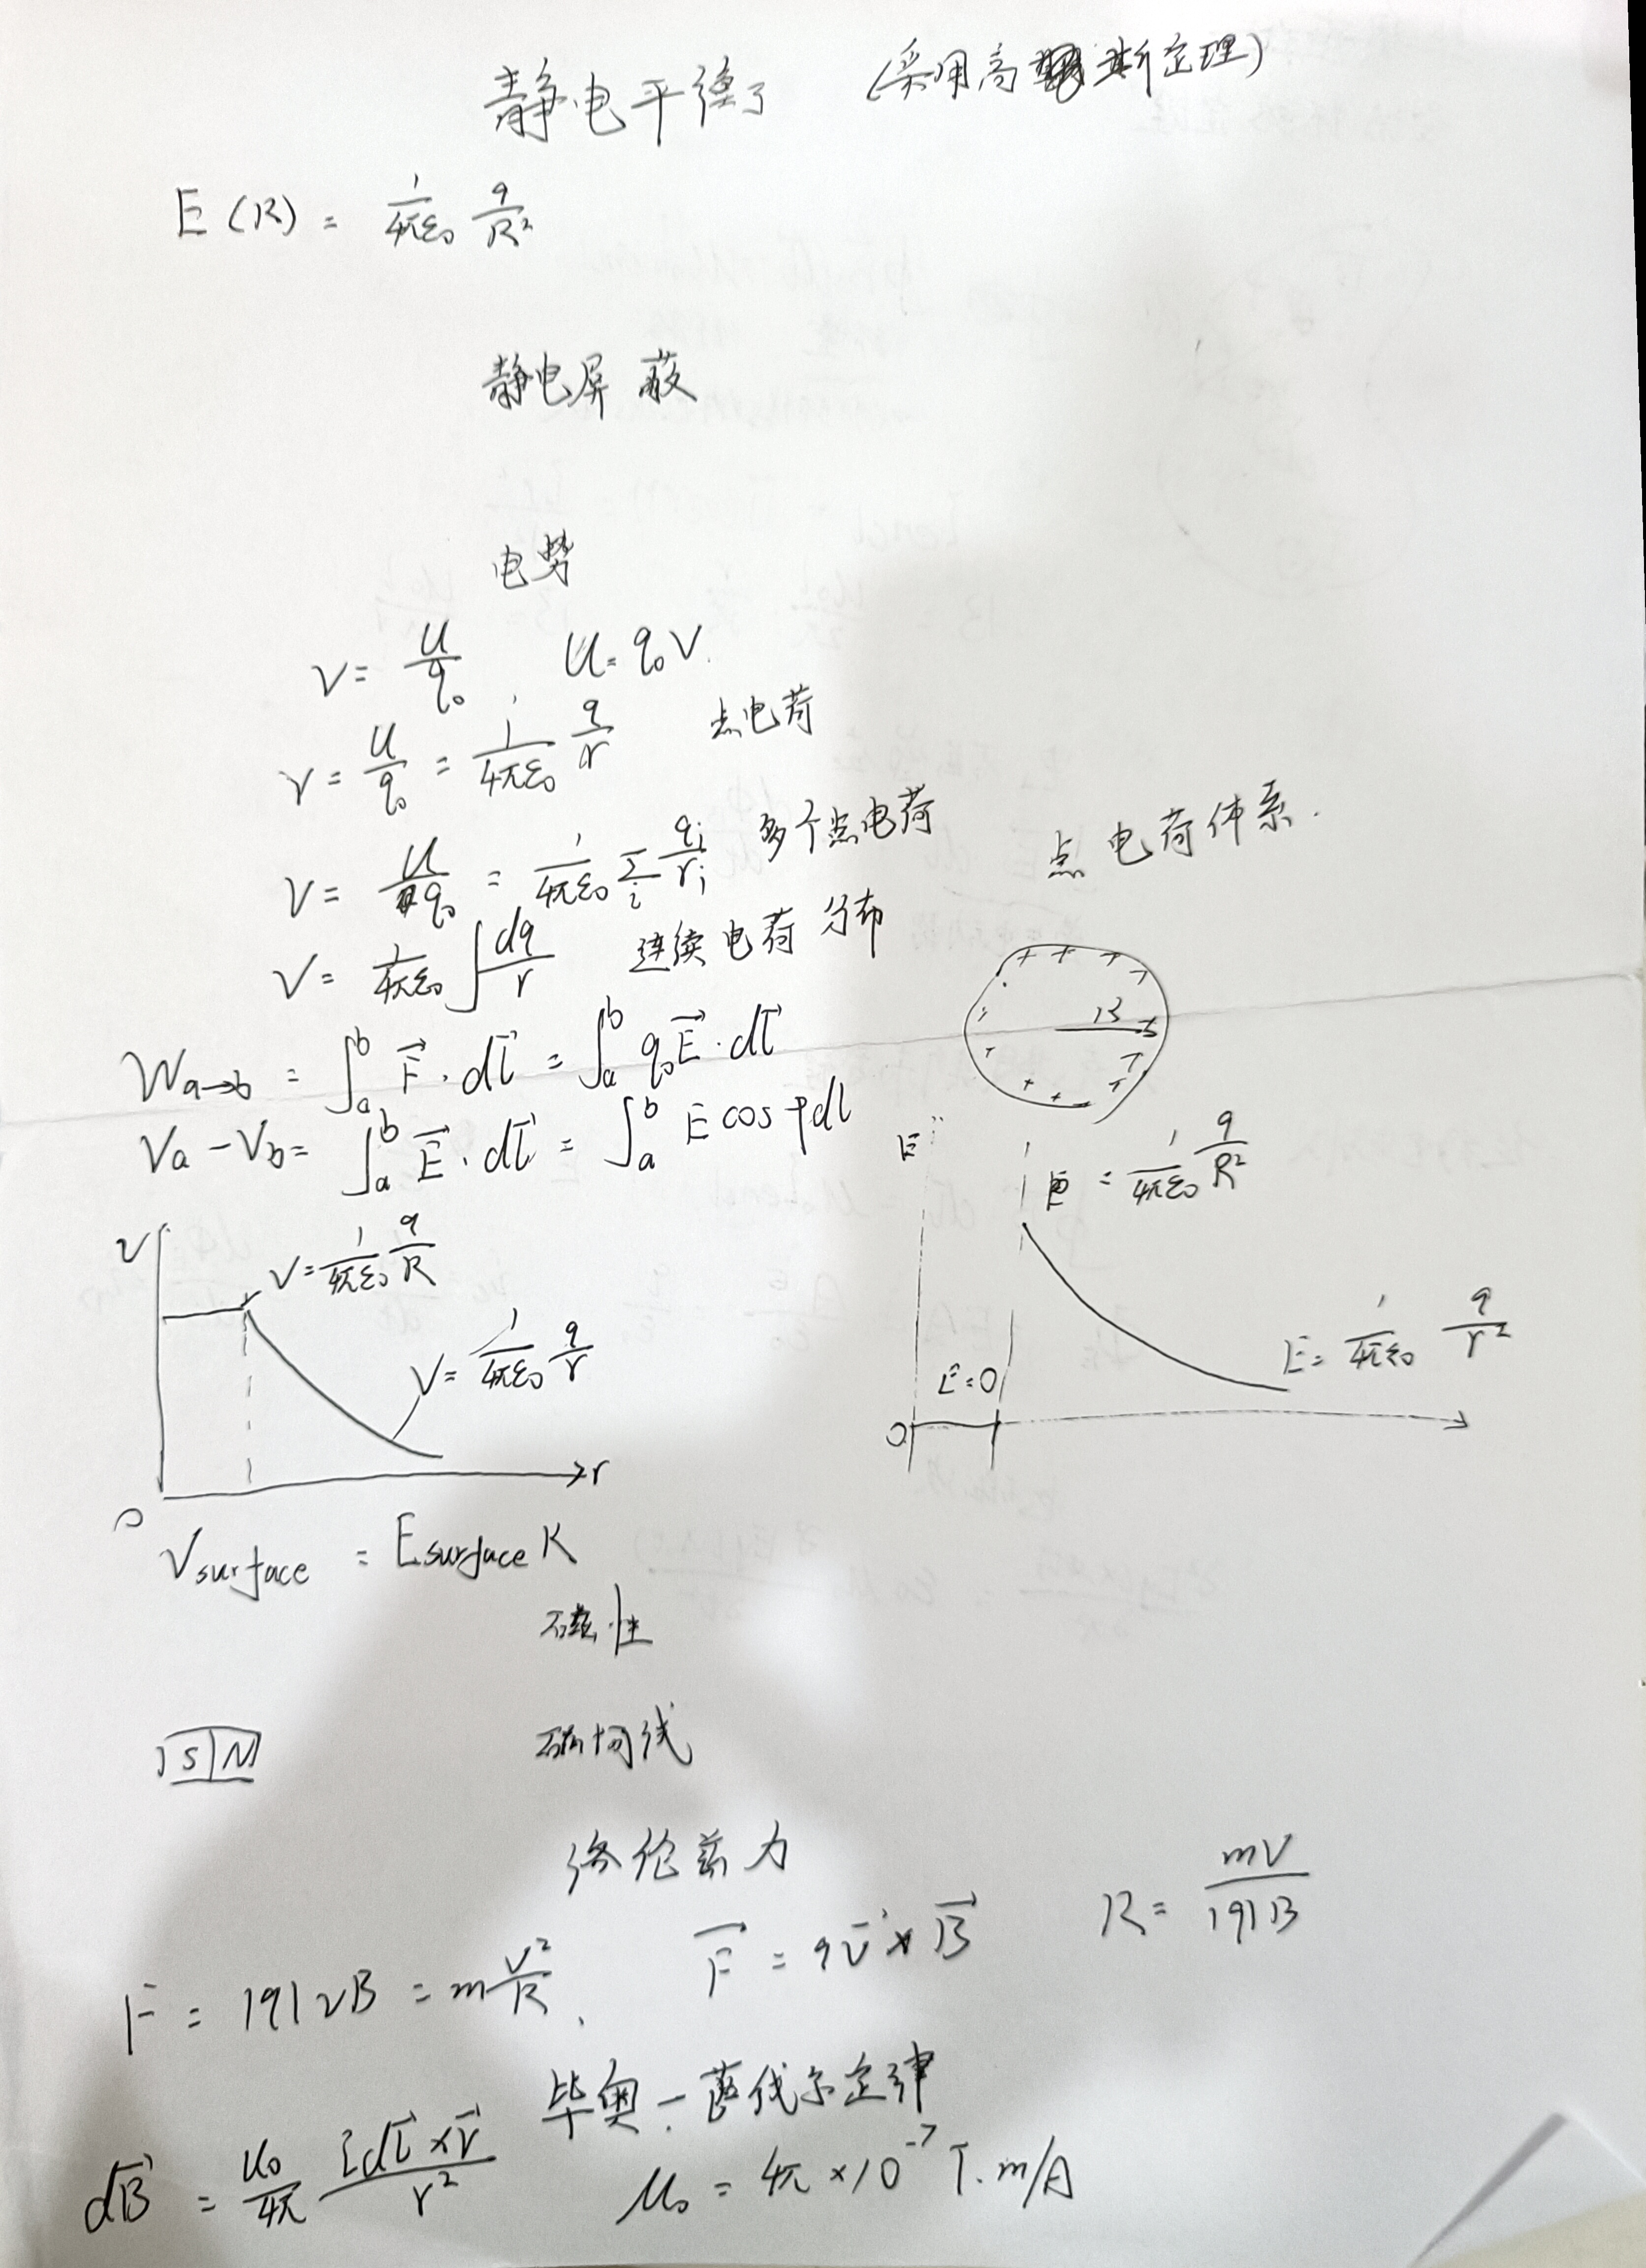 静电平衡 (采用高斯定理)
E(R) = 1/4πε₀ q/R²
静电屏蔽
电势
V = U/q₀, U = q₀V.
V = U/q₀ = 1/4πε₀ q/r 点电荷
V = U/q₀ = 1/4πε₀ Σᵢ qᵢ/rᵢ 多个点电荷
点电荷体系.
V = 1/4πε₀ ∫ dq/r 连续电荷分布
R
W a→b = ∫ₐᵇ F⃗ · dl⃗ = ∫ₐᵇ q₀E⃗ · dl⃗
Va - Vb = ∫ₐᵇ E⃗ · dl⃗ = ∫ₐᵇ E cos φ dl
E
E = 1/4πε₀ q/R²
V
V = 1/4πε₀ q/R
V = 1/4πε₀ q/r
E = 1/4πε₀ q/r²
E = 0
0
r
0
Vsurface = Esurface R
磁性
S N
磁场线
洛伦兹力
F = |q|vB = m v²/R.
F⃗ = qv⃗ × B⃗
R = mv/|q|B
毕奥-萨伐尔定律
dB⃗ = μ₀/4π Idl⃗ × r⃗/r²
μ₀ = 4π × 10⁻⁷ T·m/A